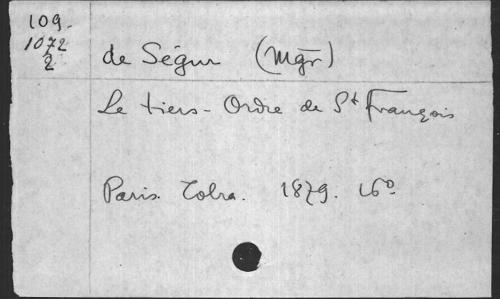 109.
1072
2
de Ségur (Mgr)
Le tiers-Ordre de St François
Paris. Tolra. 1879. 16º